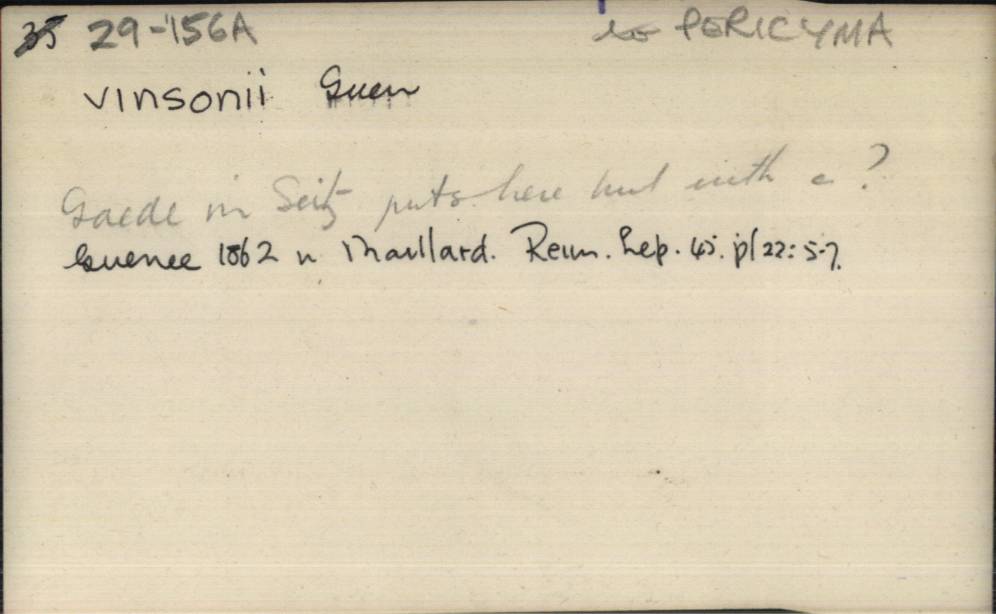 35 29-156A PERICYMA
vinsonii Guen
Gaede in Seitz puts here but with a ?
Guenee 1862 in Maillard. Reun. Lep. 45. pl 22: 5-7.